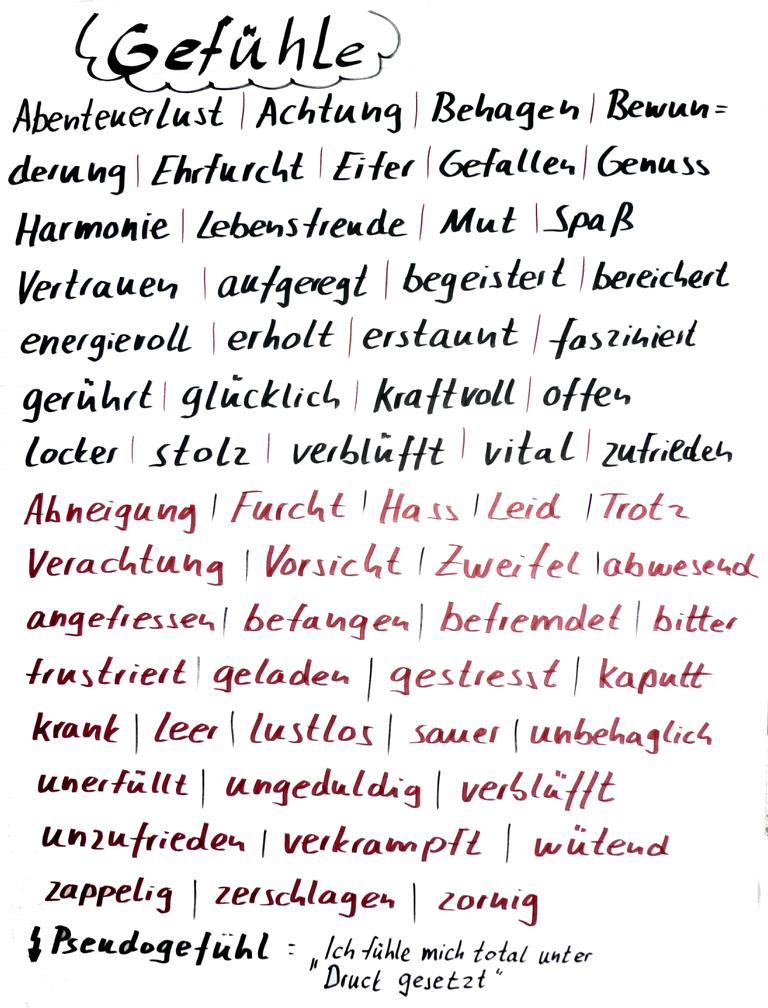 Gefühle
Abenteuerlust | Achtung | Behagen | Bewun=
derung | Ehrfurcht | Eifer | Gefallen | Genuss
Harmonie | Lebensfreude | Mut | Spaß
Vertrauen | aufgeregt | begeistert | bereichert
energievoll | erholt | erstaunt | fasziniert
gerührt | glücklich | kraftvoll | offen
locker | stolz | verblüfft | vital | zufrieden
Abneigung | Furcht | Hass | Leid | Trotz
Verachtung | Vorsicht | Zweifel | abwesend
angefressen | befangen | befremdet | bitter
frustriert | geladen | gestresst | kaputt
krank | leer | lustlos | sauer | unbehaglich
unerfüllt | ungeduldig | verblüfft
unzufrieden | verkrampft | wütend
zappelig | zerschlagen | zornig
Pseudogefühl = „Ich fühle mich total unter
Druck gesetzt“